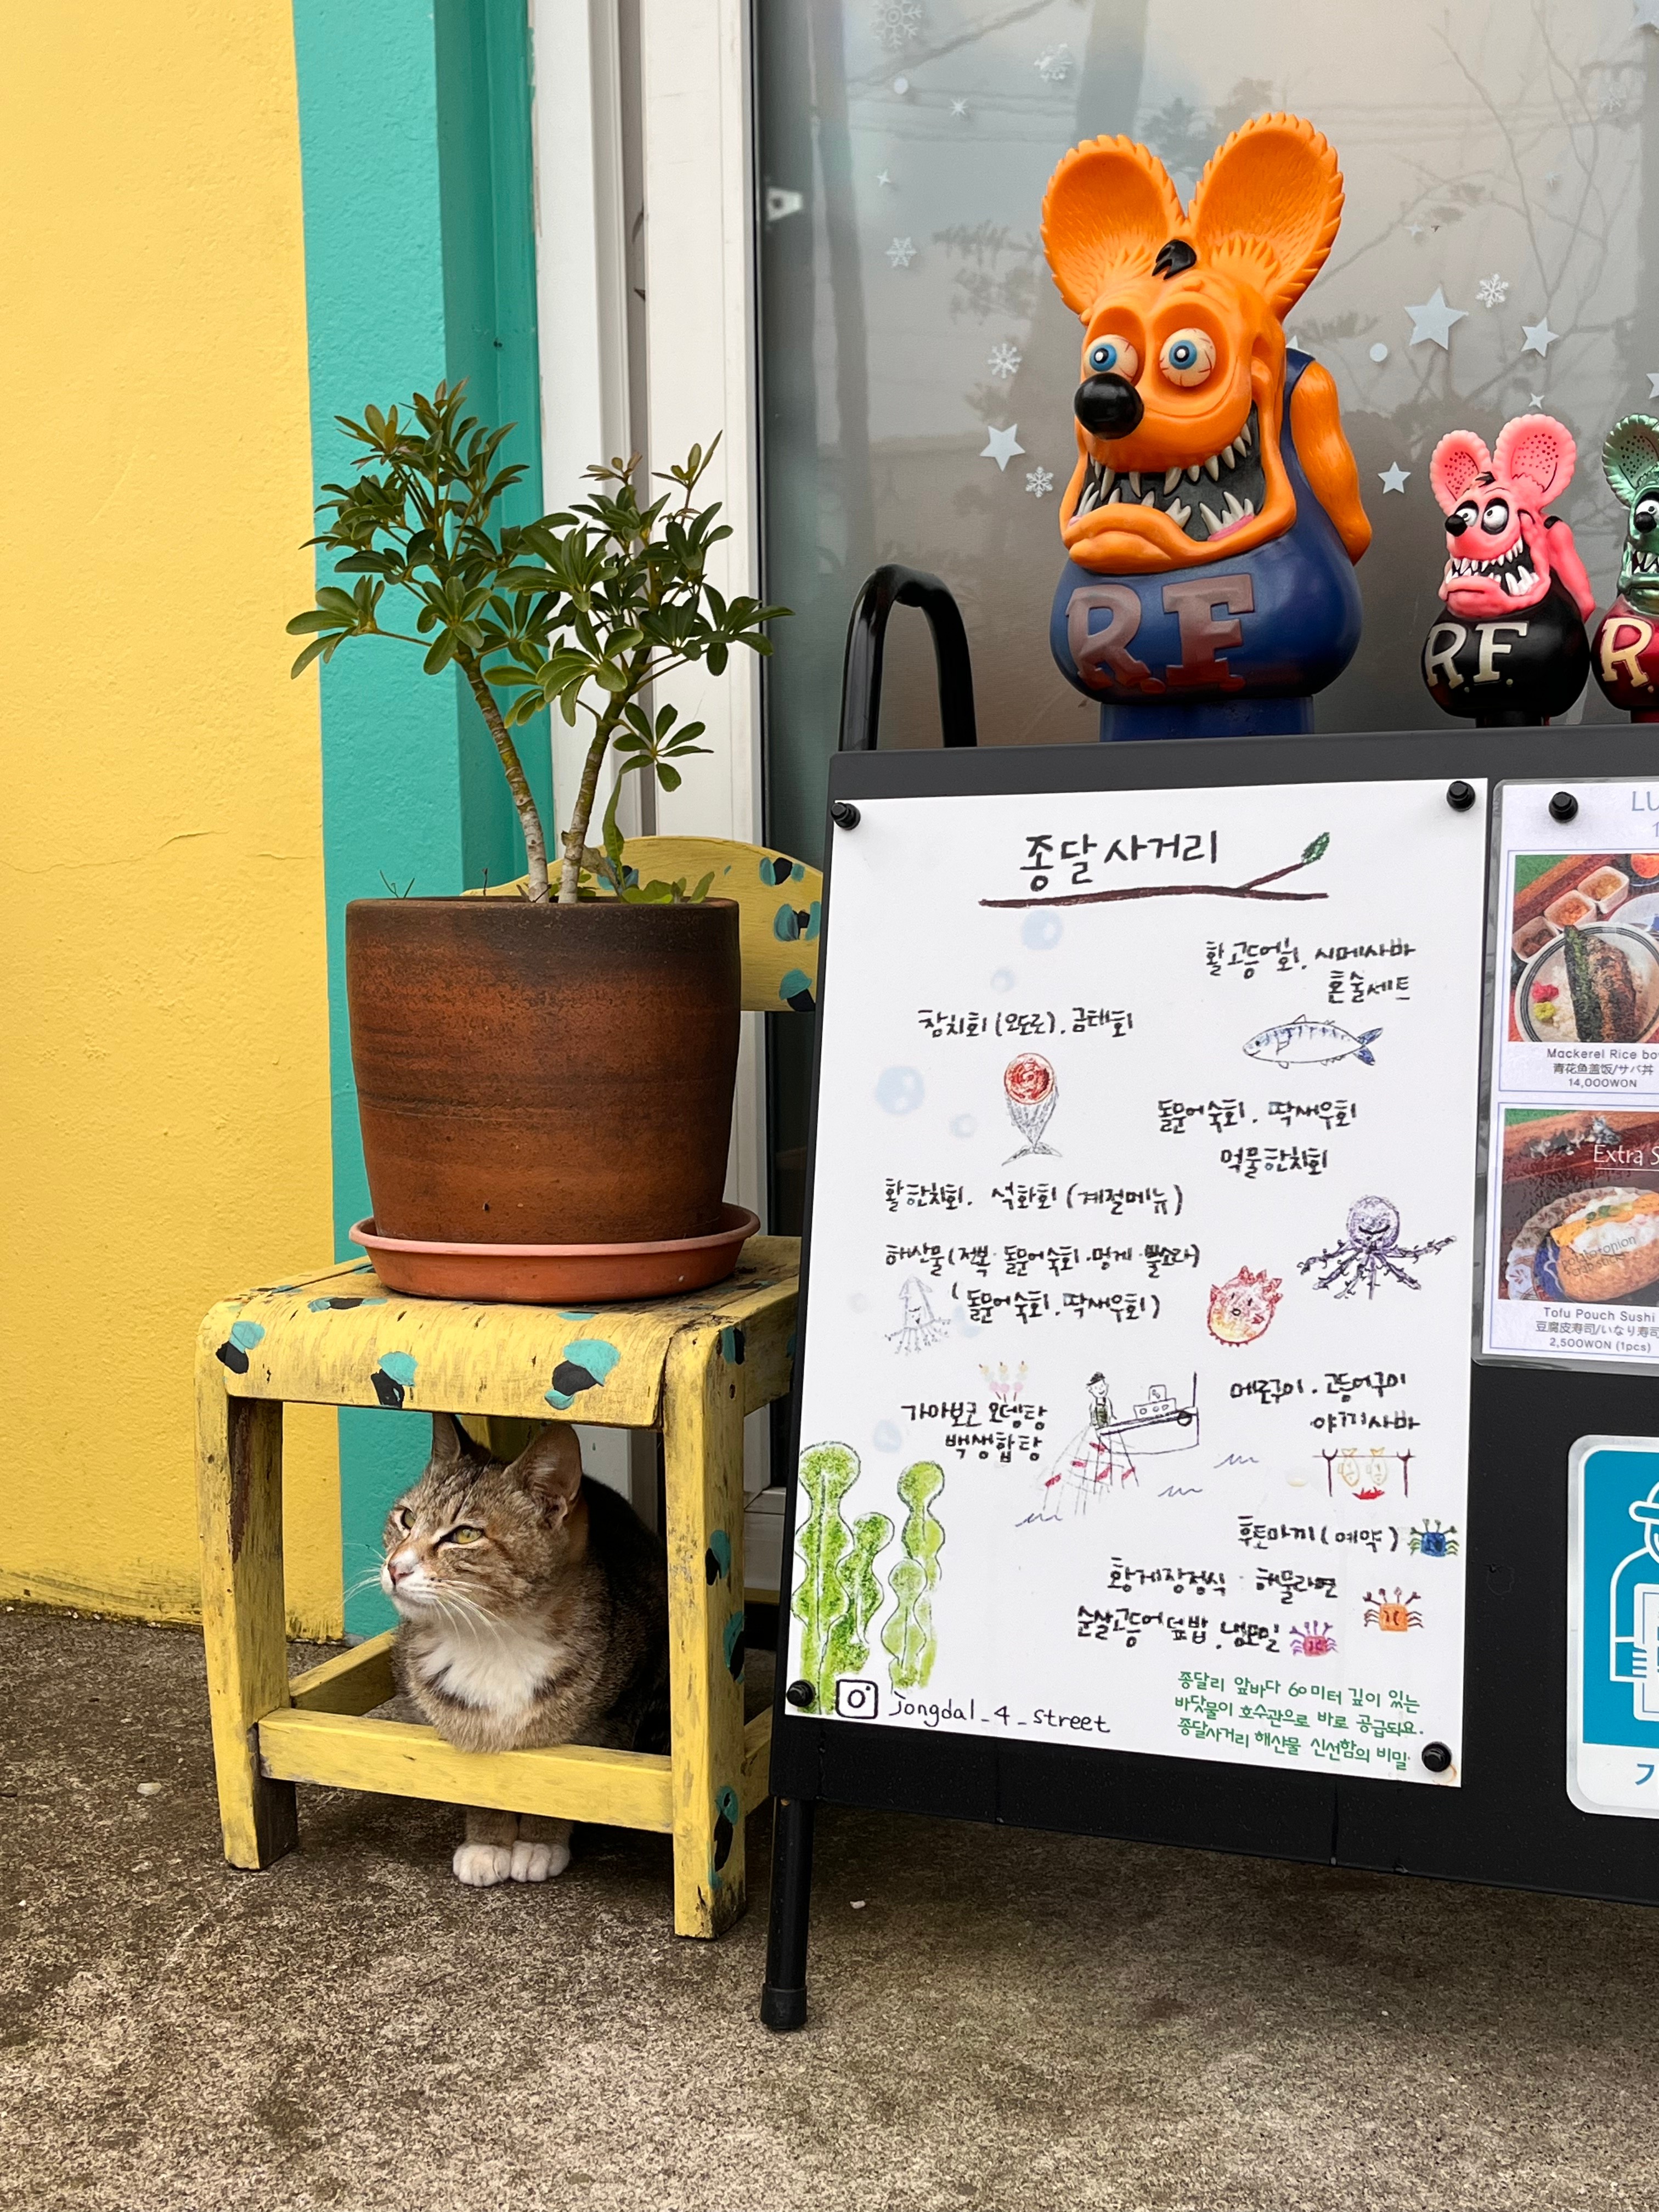 R.F.
R.F.
R.
종달사거리
활고등어회. 시메사바
혼술세트
참치회(오도로). 금태회
돌문어숙회. 딱새우회
먹물한치회
활한치회. 석화회 (계절메뉴)
해산물(전복·돌문어숙회·멍게·뿔소라)
(돌문어숙회. 딱새우회)
메로구이. 고등어구이
야끼사바
가마보코 오뎅탕
백생합탕
후토마끼(예약)
황게장정식·해물라면
순살고등어덮밥. 냉모밀
종달리 앞바다 60미터 깊이 있는
바닷물이 호수관으로 바로 공급돼요.
종달사거리 해산물 신선함의 비밀
jongdal_4_street
LU
1
Mackerel Rice bo
青花鱼盖饭/サバ丼
14,000WON
Extra S
Tofu Pouch Sushi
豆腐皮寿司/いなり寿司
2,500WON (1pcs)